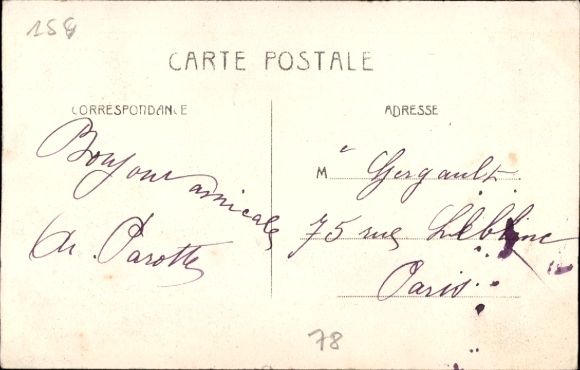 159
CARTE POSTALE
CORRESPONDANCE
ADRESSE
Bonjour amicale
Ch. Parotte
M e Gergault
75 rue Leblanc
Paris
78